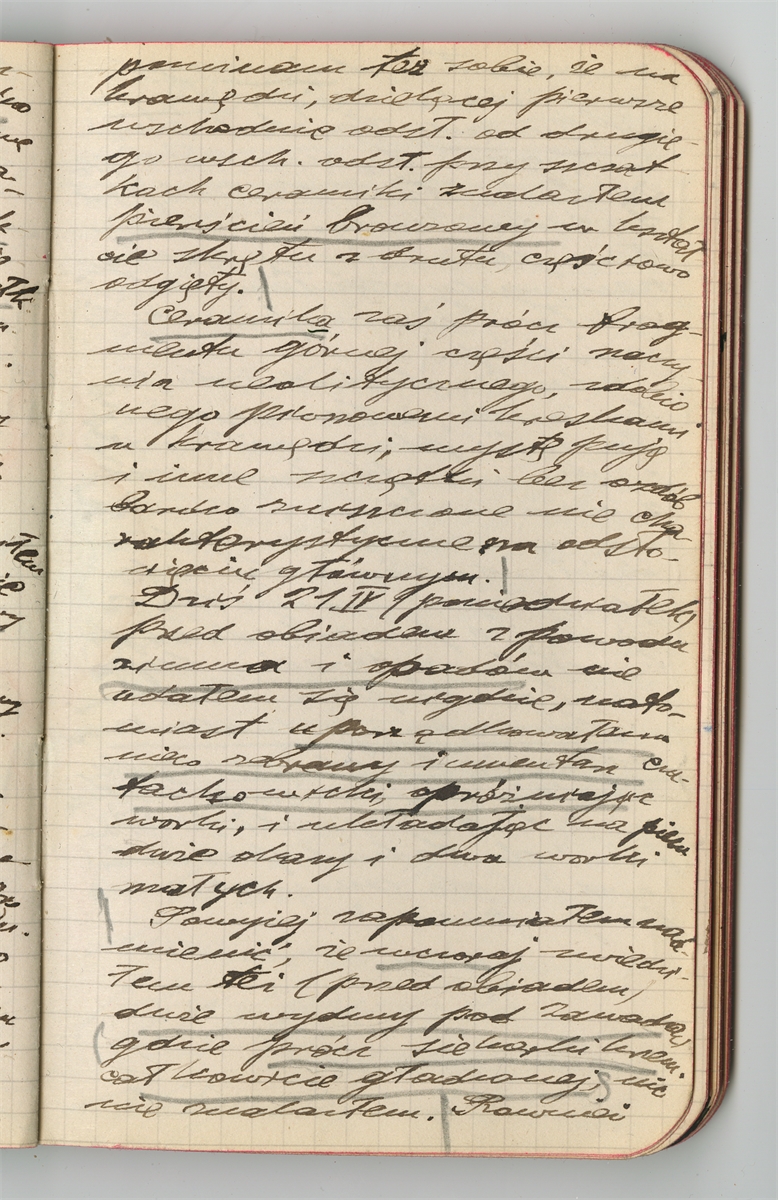 pominam też sobie, że na
krawędzi, dzielącej pierwsze
wschodnie odst. od drugie-
go wsch. odst. przy szcząt
kach ceramiki znalazłem
pierścień bronzowy w kształ
cie skrętu z drutu, częściowo
odgięty.
Ceramika zaś prócz frag-
mentu górnej części naczy-
nia neolitycznego, zdobio
nego pionowemi kreskami
u krawędzi, występują
i inne szczątki bez ozdób
bardzo zniszczone nie cha-
rakterystyczne na odsło-
nięciu głównym.
Dziś 21 IV (poniedziałek)
przed obiadem z powodu
zimna i opadów nie
udałem się nigdzie, nato-
miast uporządkowałem
nieco zebrany inwentarz cm-
tachowski, opróżniając
worki, i układając na
dwie okazy i dwa worki
małych.
Powyżej zapomniałem nad-
mienić, że wczoraj zwiedzi-
łem też (przed obiadem)
duże wydmy pod Zawadą,
gdzie prócz siekierki krzem.
całkowicie gładzonej, nic
nie znalazłem. Również